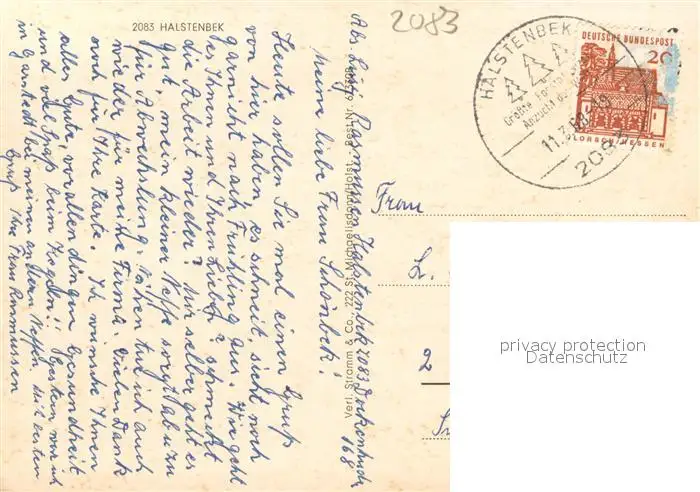 2083 HALSTENBEK
2083
Abs. Rasmussen Halstenbek 2083
168
Meine liebe Frau Schönbek!
Heute sollen Sie mal einen Gruß
von hier haben, es schneit, sieht noch
garnicht nach Frühling aus. Wie geht
es Ihnen und Ihren Lieben? schmeckt
die Arbeit wieder? Mir selber geht es
gut, mein kleiner Neffe sorgt
für Abwechslung. Nähen tue ich auch
wieder für meine Firma. Vielen Dank
noch für Ihre Karte. Ich wünsche Ihnen
alles Gute, vor allen dingen Gesundheit
und viel Spaß beim Kegeln! Gestern war ich
in Garstedt bei meinem andern Neffen.
Gruß Ihre Frau Rasmussen
Verl. Stramm & Co. 222 St. Michaelisdonn/Holst. Best.Nr.
Frau
L.
2
HALSTENBEK
Größte
Anzucht
11.3.
2083
DEUTSCHE BUNDESPOST
20
LORSCH/HESSEN
privacy protection
Datenschutz